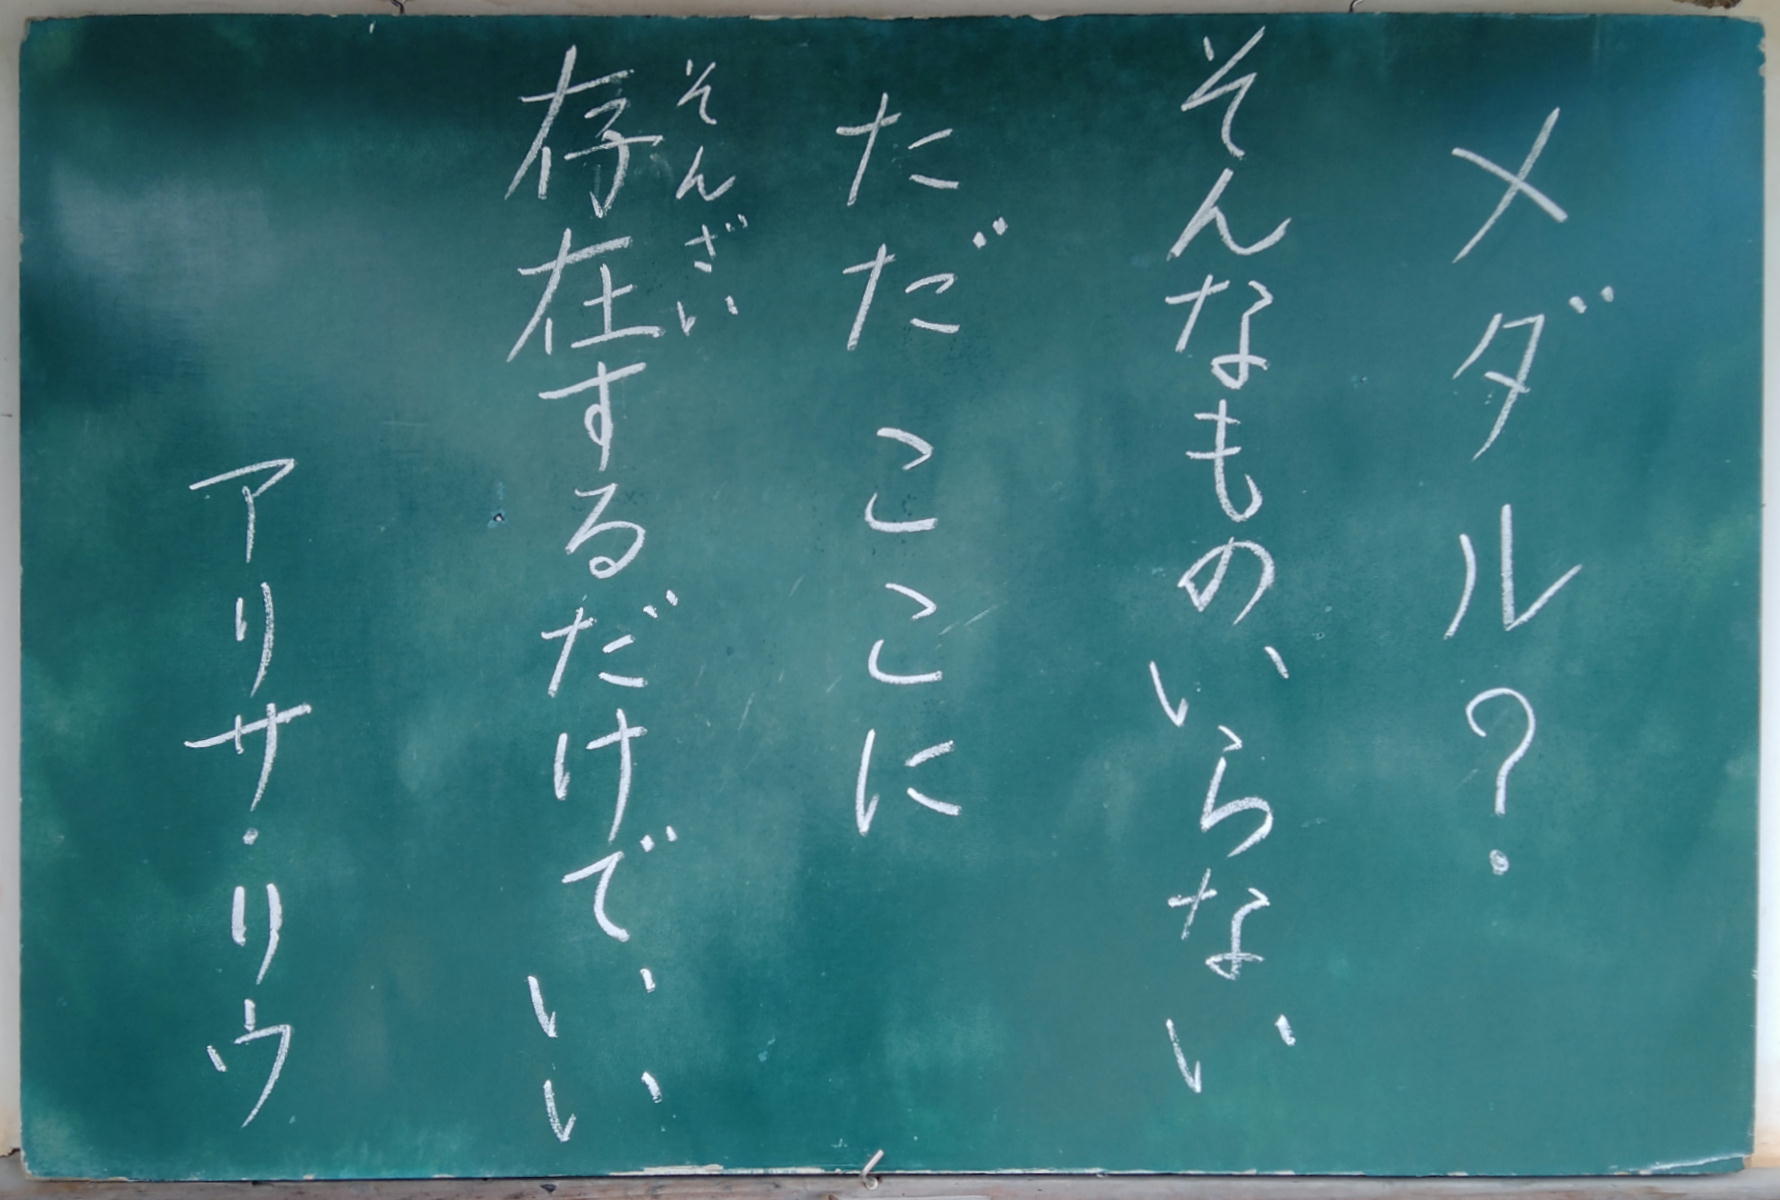 メダル?
そんなもの、いらない
ただ ここに
そんざい
存在するだけでいい
アリサ・リウ